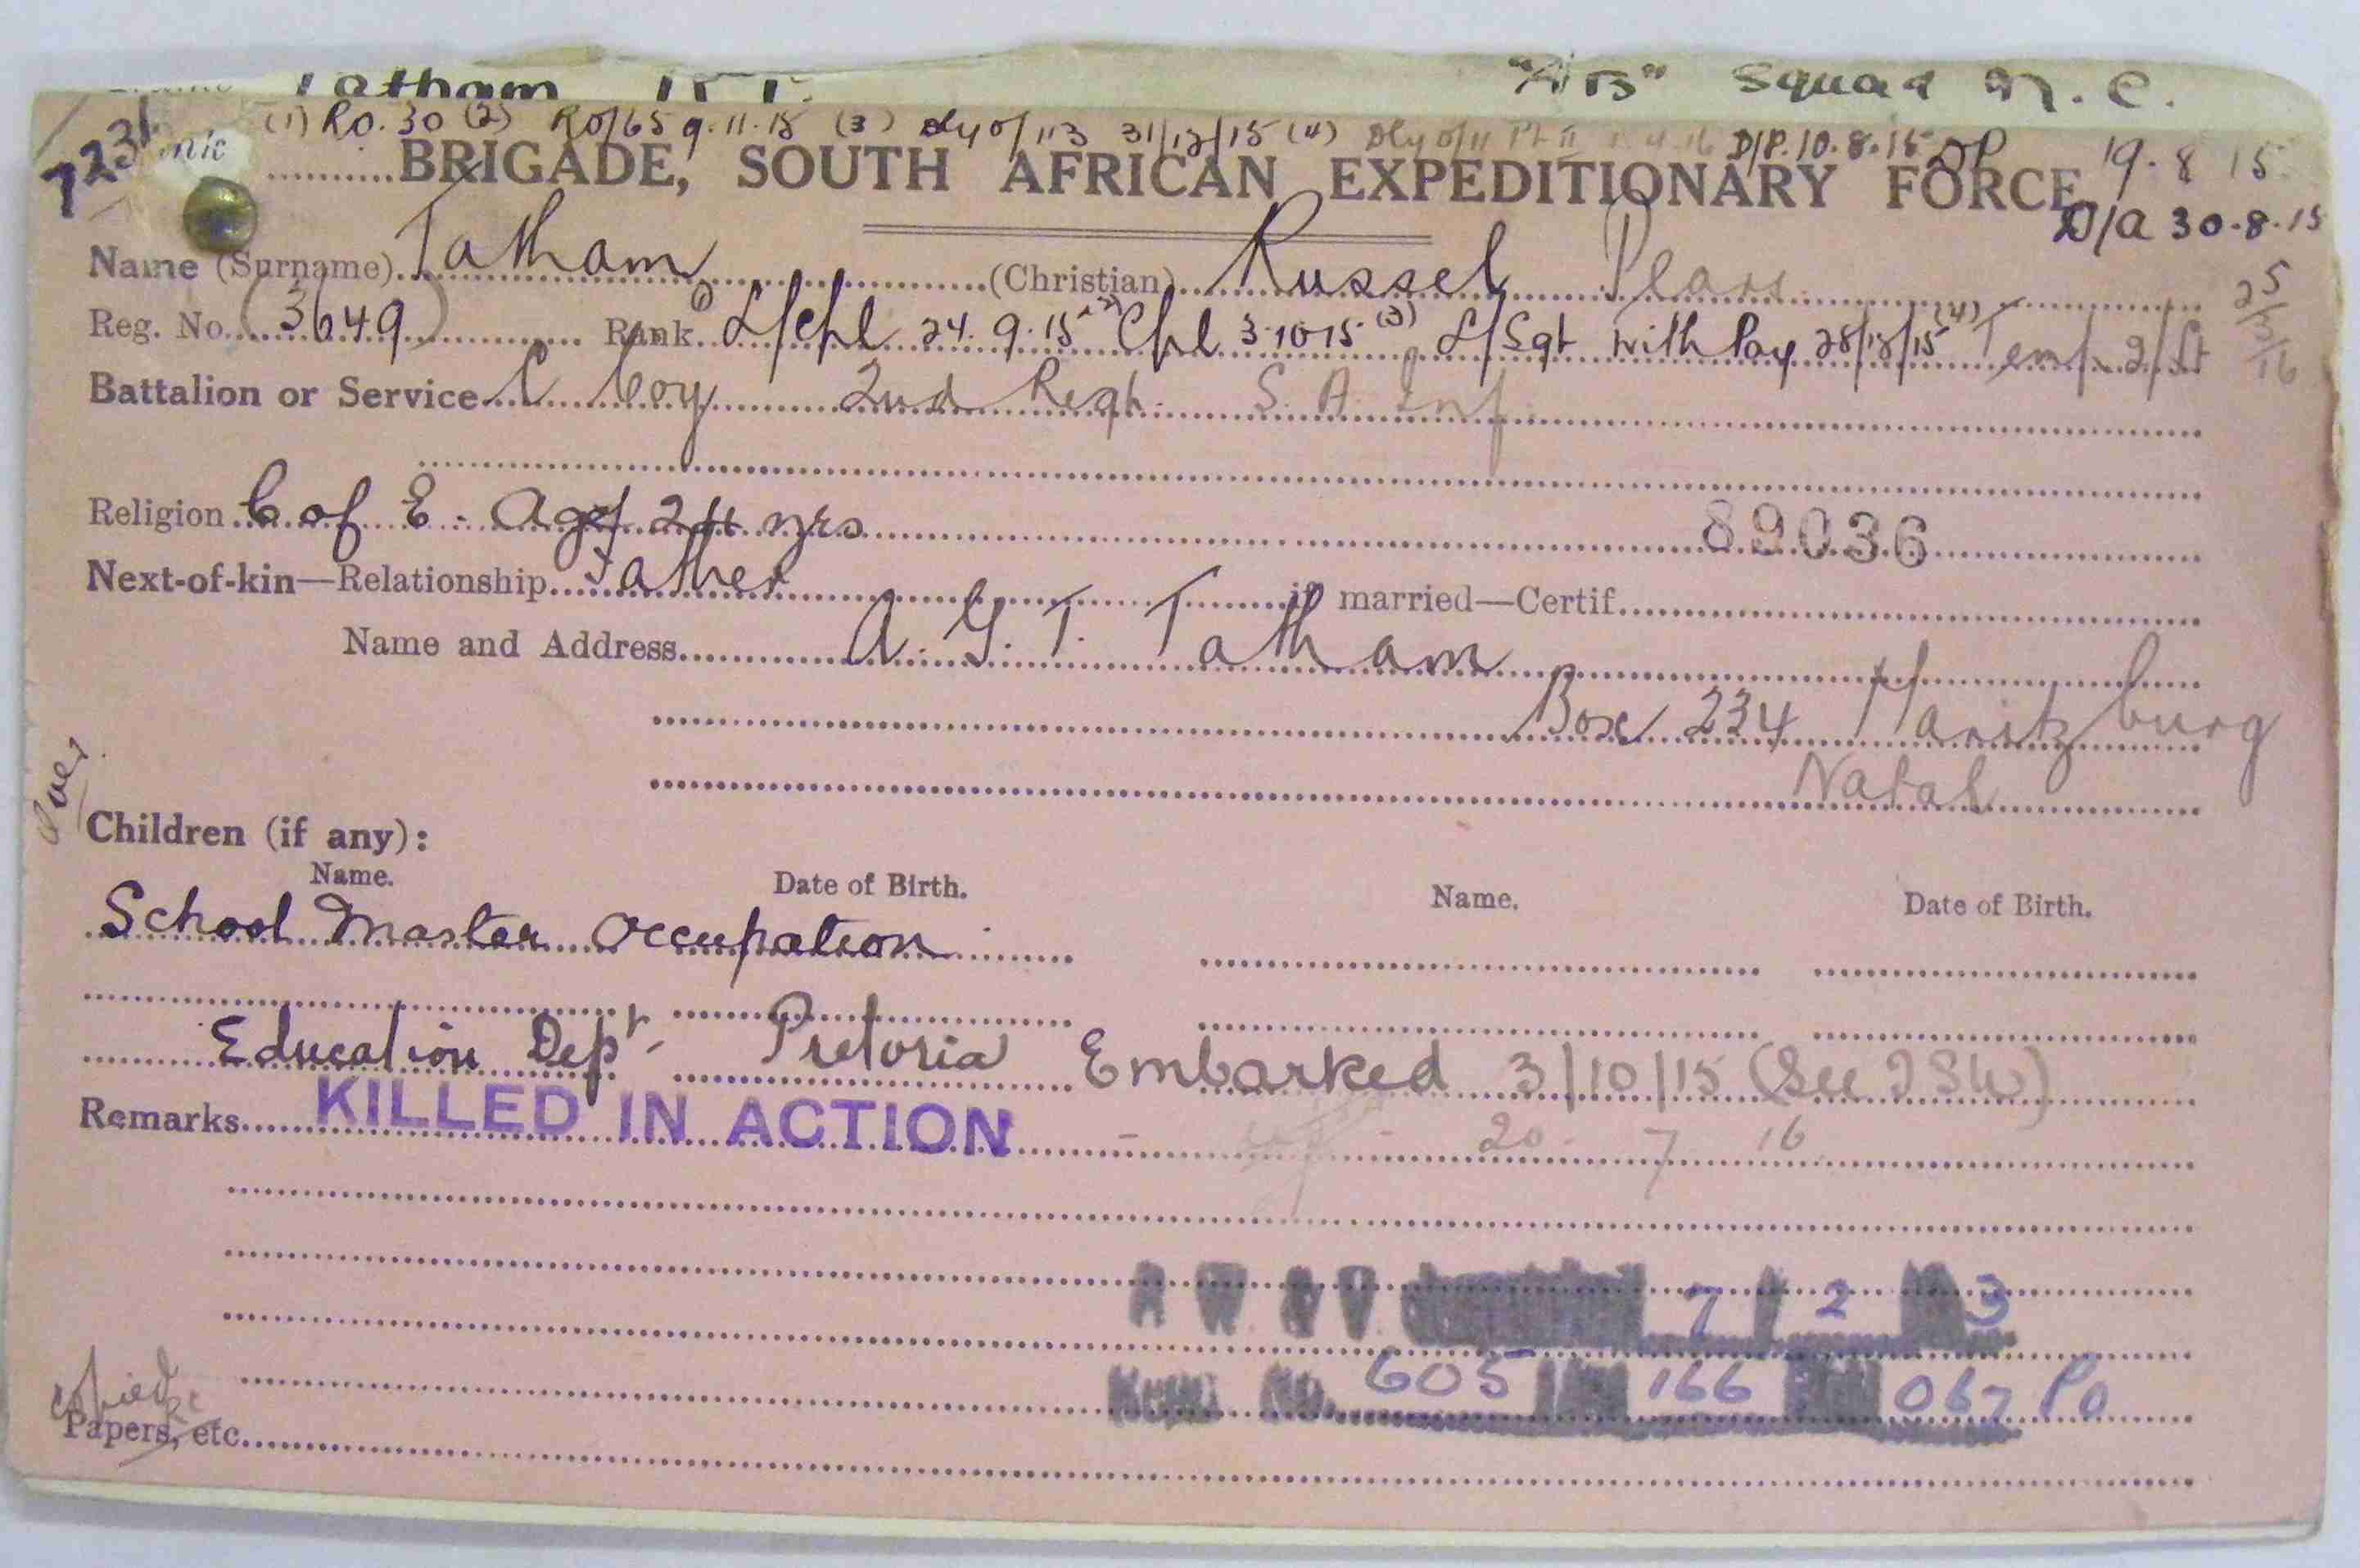 Tatham "A B" Squad N. C.
(1) R.O. 30 (2) RO/65 9.11.15 (3) Dly o/113 31/12/15 (4) Dly o/11 Pt II 1.4.16 D/P. 10.8.15 OP 19.8 15
7231
BRIGADE, SOUTH AFRICAN EXPEDITIONARY FORCE
D/a 30.8.15
Name (Surname) Tatham (Christian) Russel
Reg. No. (3649) Rank (1) L/Cpl 24.9.15 (2) Cpl 3.10.15 (3) L/Sgt with Pay 28/12/15 (4) Temp 2/Lt 25/3/16
Battalion or Service C Coy 2nd Regt. S. A. Inf.
Religion C of E. Age 24 yrs 89036
Next-of-kin—Relationship Father if married—Certif.
Name and Address A. G. T. Tatham
Box 234 Maritzburg
Natal
Over
Children (if any):
Name. Date of Birth. Name. Date of Birth.
School Master Occupation
Education Dept - Pretoria Embarked 3/10/15
Remarks KILLED IN ACTION - 20 7 16
7 2 3
No. 605 166 067 Po
copied
Papers, etc.